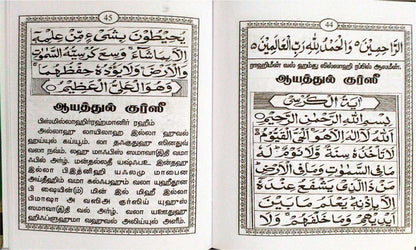 44
الرَّاحِمِيْنَ ۝ وَالْحَمْدُ لِلّٰهِ رَبِّ الْعَالَمِيْنَ ۝
ராஹிமீன் வல் ஹம்து லில்லாஹி ரப்பில் ஆலமீன்.
ஆயத்துல் குர்ஸீ
اٰيَةُ الْكُرْسِيّ
بِسْمِ اللهِ الرَّحْمٰنِ الرَّحِيْمِ
اَللهُ لَآ اِلٰهَ اِلَّا هُوَ اَلْحَيُّ الْقَيُّوْمُ
لَا تَأْخُذُهٗ سِنَةٌ وَّلَا نَوْمٌ لَهٗ
مَا فِي السَّمٰوٰتِ وَمَا فِي الْاَرْضِ
مَنْ ذَا الَّذِيْ يَشْفَعُ عِنْدَهٗ
اِلَّا بِاِذْنِهٖ يَعْلَمُ مَا بَيْنَ
اَيْدِيْهِمْ وَمَا خَلْفَهُمْ وَلَا
45
يُحِيْطُوْنَ بِشَيْءٍ مِّنْ عِلْمِهٖ
اِلَّا بِمَا شَآءَ وَسِعَ كُرْسِيُّهُ السَّمٰوٰتِ
وَالْاَرْضَ وَلَا يَؤُدُهٗ حِفْظُهُمَا
وَهُوَ الْعَلِيُّ الْعَظِيْمُ
ஆயத்துல் குர்ஸீ
பிஸ்மில்லாஹிர்ரஹ்மானிர் ரஹீம்
அல்லாஹு லாயிலாஹ இல்லா ஹுவல்
ஹய்யுல் கய்யூம். லா தஃகுதுஹூ ஸினதுவ்
வலா நவ்ம். லஹூ மாஃபிஸ் ஸமாவாத்தி வமா
ஃபில் அர்ழ். மன்தல்லதீ யஷ்ஃபஉ இன்தஹூ
இல்லா பிஇத்னிஹி யஃலமு மாபைன
அய்தீஹிம் வமா கல்ஃபஹும் வலா யுஹீதூன
பி ஷைஇம் மின் இல் மிஹீ இல்லா
பிமாஷா அ வஸிஅ குர்ஸிய் யுஹுஸ்
ஸமாவா(த்)தி வல் அர்ழ். வலா யஊதுஹூ
ஹிஃப்ளுஹுமா வஹுவல் அலிய்யுல் அளீம்.